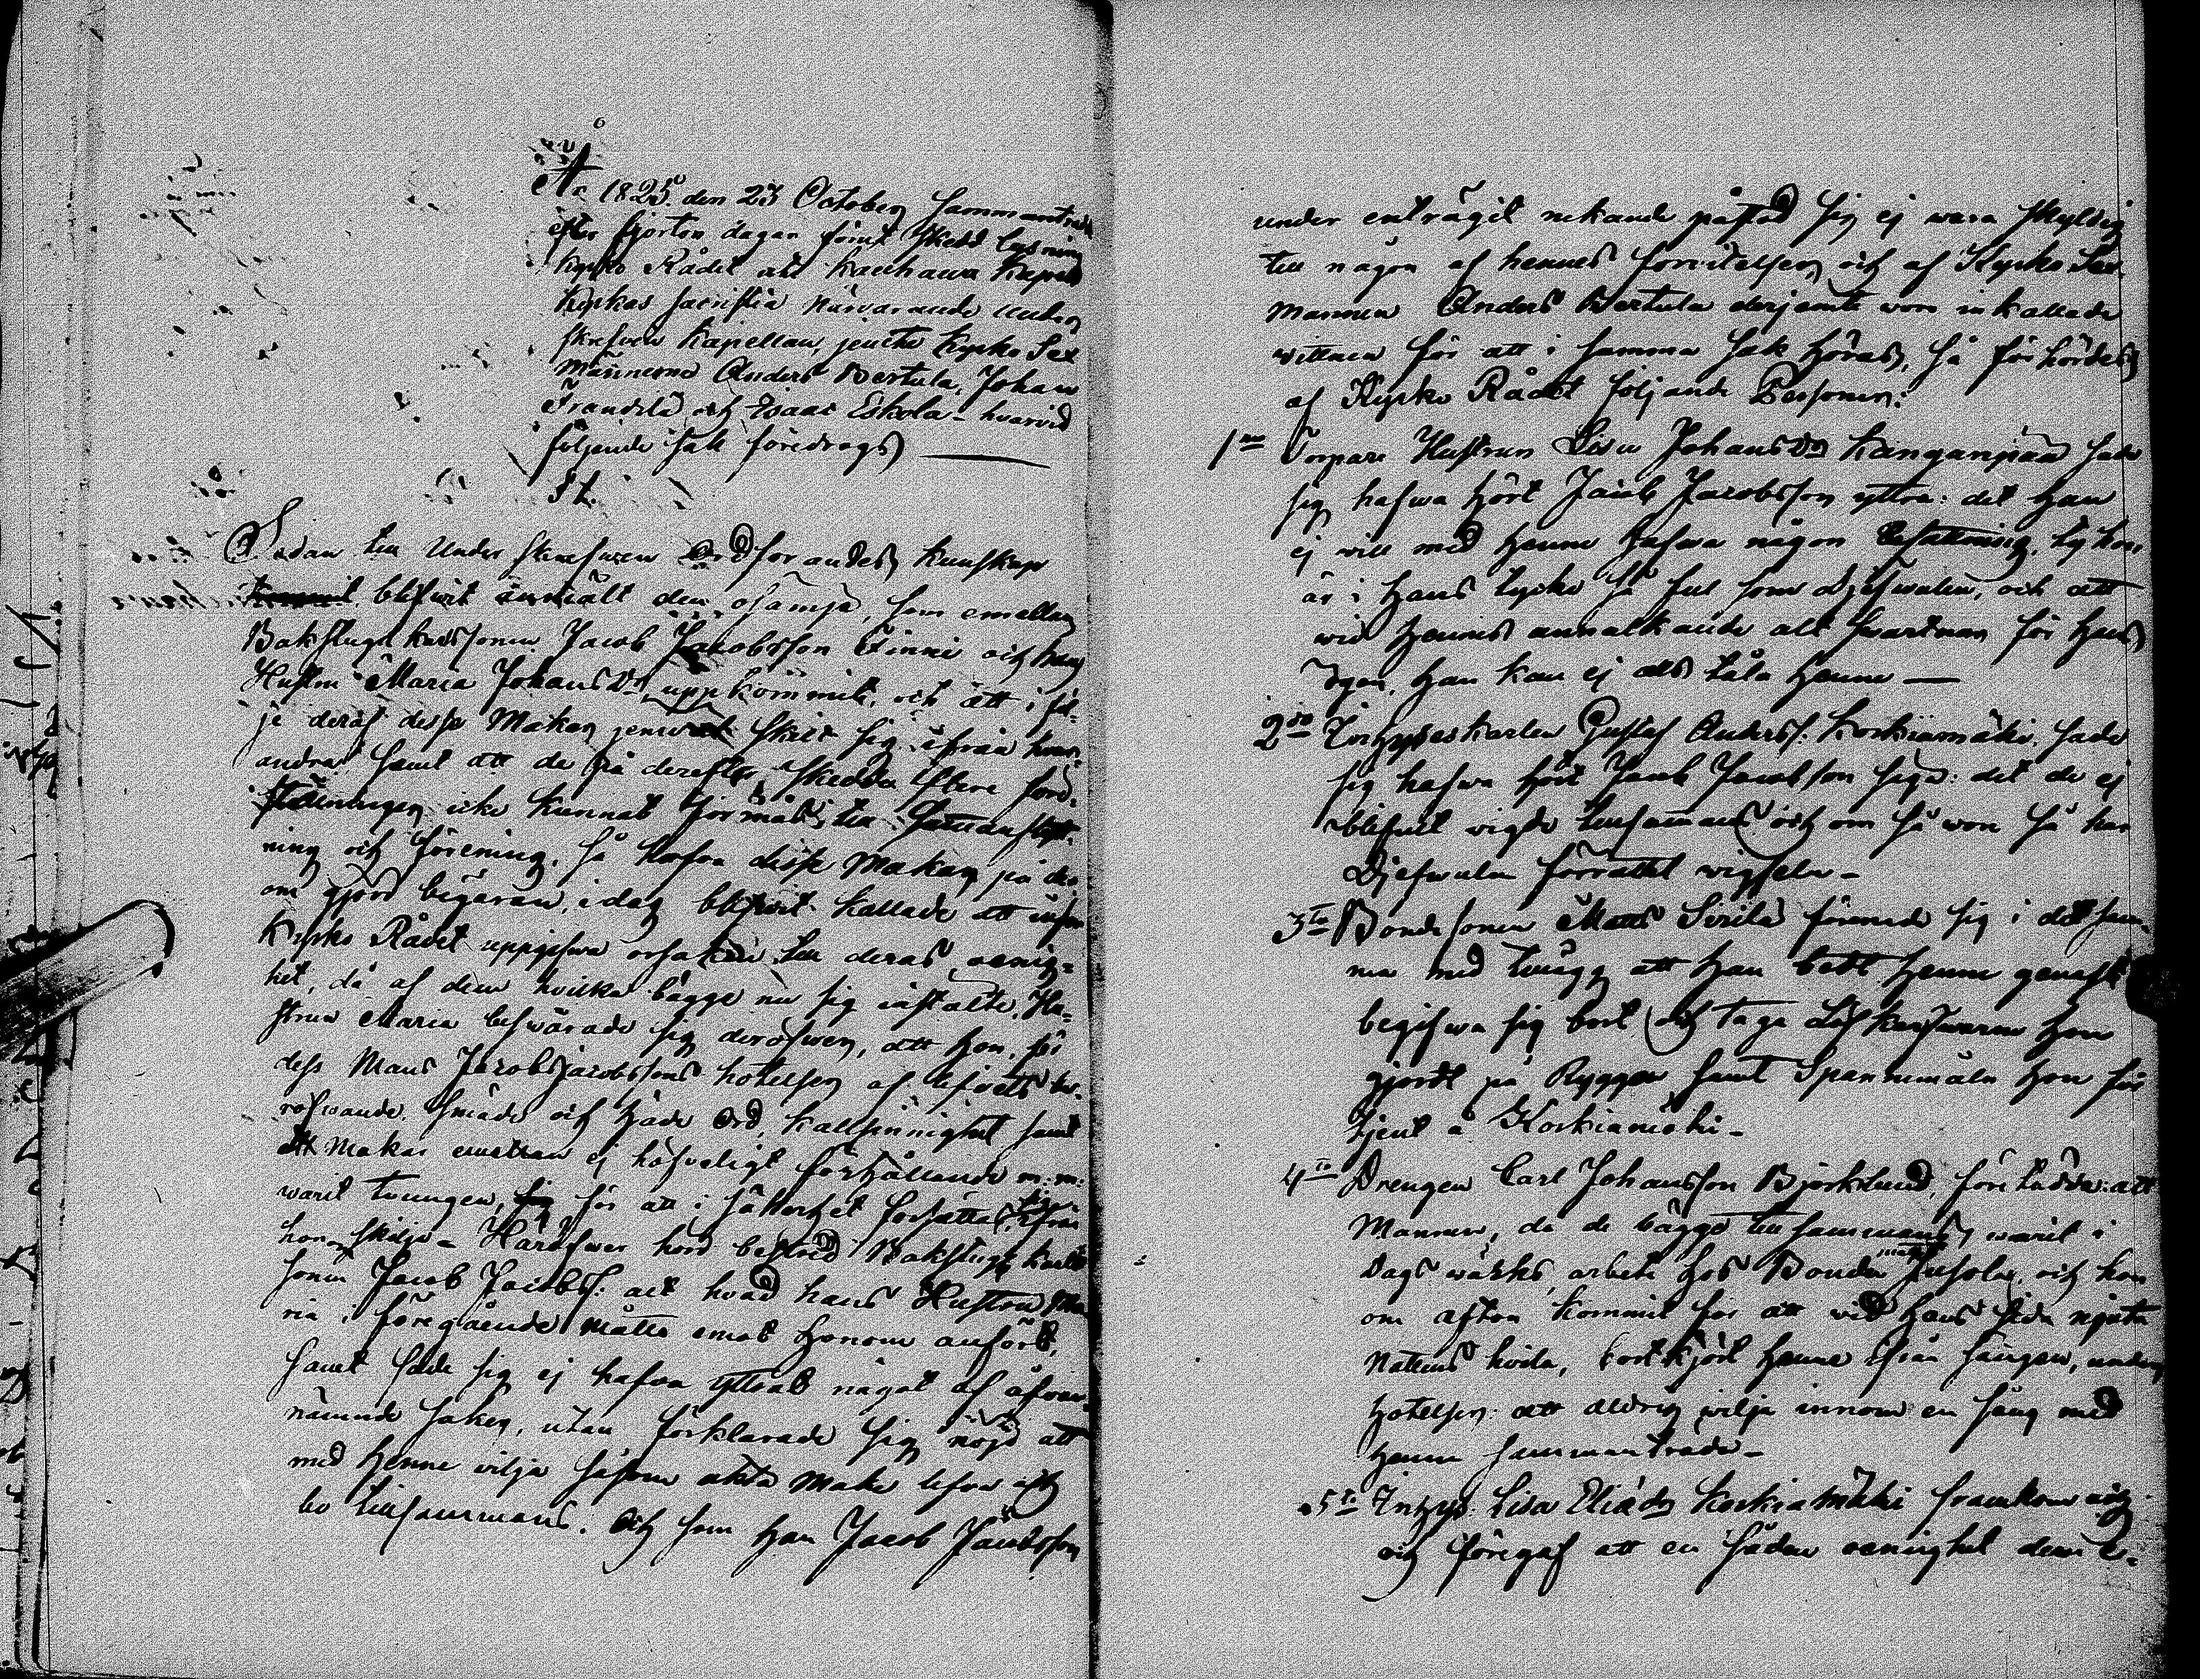 År 1825 den 23 October sammanträdde
efter fjorton dagar förut skedd lysning
Kyrko Rådet uti Kauhawa Kapell
Kyrkas sacristia närvarande under
skrefven Kapellan, jemte Kyrko Sex
männerne Anders Bertula, Johan
Frandila och Isaac Eskola – hvarvid
följande sak föredrogs
§ 1.
Sedan till Under skrefwen Ordförandes kunskap
blifwit anmält den osämja, som emellan
Bakstugu karlssonen Jacob Jacobsson Finni och hans
Hustru Maria Johansdr uppkommit, och att i föl-
je deraf desse Makar skilt sig ifrån hvar-
andra, samt att de på derefter skedda
icke kunnat förmås till
ning och förening, så hafva desse Makar på der-
om gjord begäran, i dag blifwit kallade att inför
Kyrko Rådet uppgifwa orsaken till deras oenig-
het, då af dem hvilka bägge nu sig inställte, Hu-
strun Maria beswärade sig deröfwer, att hon, för
dess Mans Jacob Jacobssons hotelser af lifwets be-
röfwande, smäde och håde Ord, kallsinnighet samt
Makar emellan ej höfveligt förhållande m: m:
warit twungen, för att i säkerhet försättas sig ifrån
honom skilja – Häröfwer hörd bestred Bakstugu karls
sonen Jacob Jacobss: allt hvad hans Hustru Ma
ria i föregående måtto emot honom anfört,
samt sade sig ej hafva yttrat något af ofvan-
nämnde saker, utan förklarade sig nöjd att
med henne vilja såsom äkta make lefva och
bo tillsammans. Och som han Jacob Jacobsson
under enträgit nekande påstod sig ej wara skyldig
till någon af hennes förvitelser och af Kyrko Sex
mannen Anders Bertula derjemte woro inkallade
wittnen för att i samma sak höras, så förhördes
af Kyrko Rådet följande Personer:
1mo Torpare Hustrun Lisa Johansdr Kanganpää sade
sig hafwa hört Jacob Jacobsson yttra: det han
ej vill med henne hafwa någon befattning, ty hon
är i hans tycke så ful som djefwulen, och att
wid hennes annalkande allt swartnar för hans
ögon, han kan ej alls tåla henne —
2do Inhyseskarlen Gustaf Anderss: Korkiamäki, sade
sig hafwa hört Jacob Jacobsson säga: det de ej
blifwit wigde tillsammans och om så wore så har
Djefwulen förrättat wigseln –
3tio Bondesonen Matts Svrila förenade sig i det sam-
ma med tillägg att han bedt henne genast
begifwa sig bort och taga hon
gjordt på Ryggen samt Spannmålen hon för
tjent å Korkiamäki –
4to Drengen Carl Johansson Björklund, förtäljde: att
Mannen, då de bägge tillsammans warit i
Dags wärks arbete hos Bonden Matts och hon
om afton kommit för att wid hans sida njuta
Nattens hvila, bortkjört henne ifrån sängen, under
hotelser: att aldrig wilja innom en säng med
henne sammanträda –
5to Inhys: Lisa Eliaedr Korkiamäki framkom och
och föregaf att en sådan oenighet dem e-